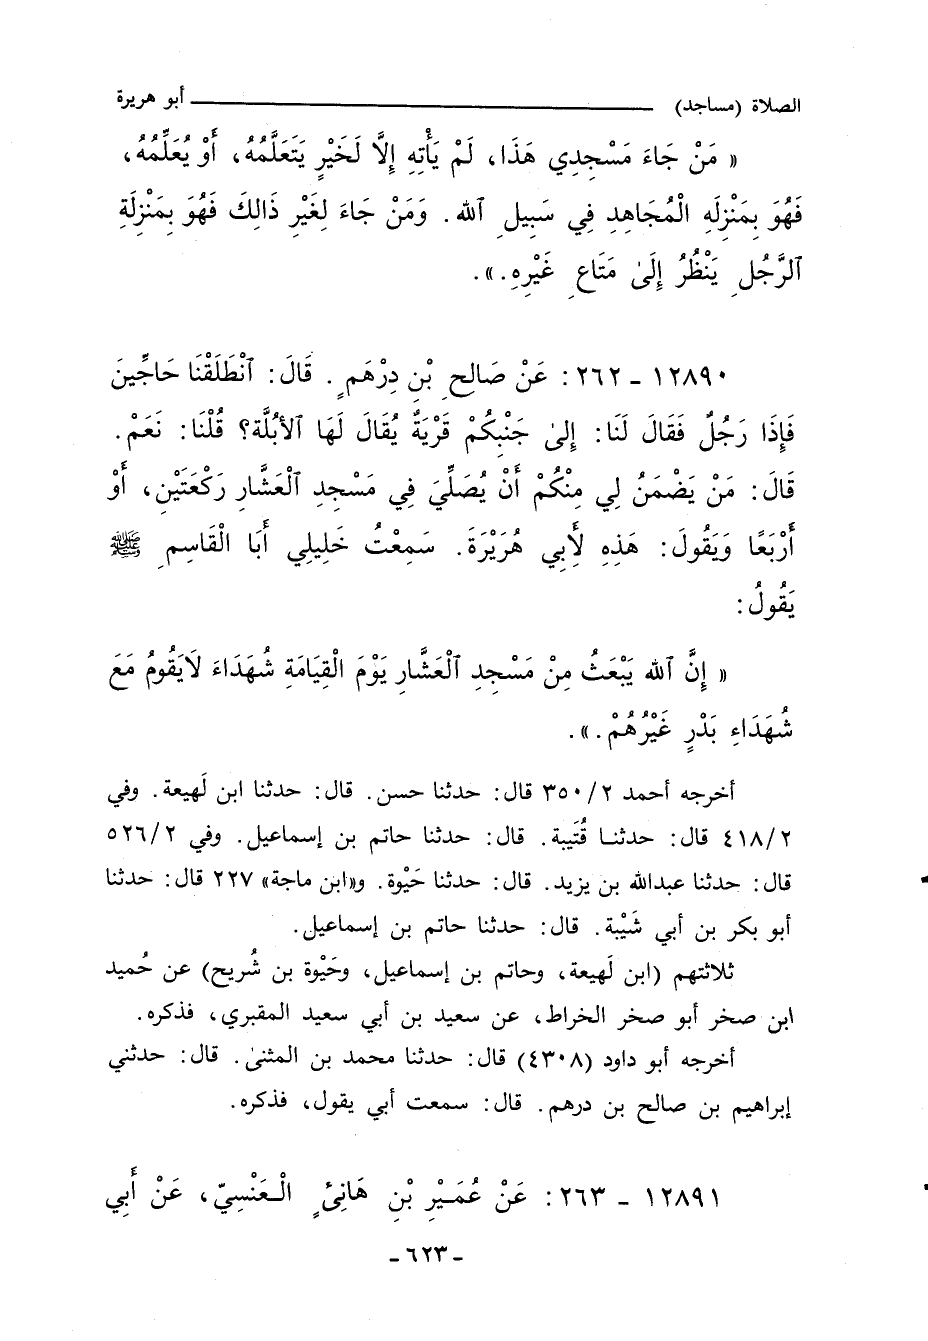 الصلاة (مساجد) ـــــــــ أبو هريرة
« مَنْ جَاءَ مَسْجِدِي هَذَا، لَمْ يَأْتِهِ إِلَّا لَخَيْرٍ يَتَعَلَّمُهُ، أَوْ يُعَلِّمُهُ،
فَهُوَ بِمَنْزِلَهِ الْمُجَاهِدِ فِي سَبِيلِ ٱلله. وَمَنْ جَاءَ لِغَيْرِ ذَالِكَ فَهُوَ بِمَنْزِلَةِ
ٱلرَّجُلِ يَنْظُرُ إِلَىٰ مَتَاعِ غَيْرِهِ.».
١٢٨٩٠ - ٢٦٢: عَنْ صَالِحِ بْنِ دِرْهَمٍ. قَالَ: ٱنْطَلَقْنَا حَاجِّينَ
فَإِذَا رَجُلٌ فَقَالَ لَنَا: إِلىٰ جَنْبِكُمْ قَرْيَةٌ يُقَالَ لَهَا ٱلأُبُلَّة؟ قُلْنَا: نَعَمْ.
قَالَ: مَنْ يَضْمَنُ لِي مِنْكُمْ أَنْ يُصَلِّيَ فِي مَسْجِدِ ٱلْعَشَّارِ رَكْعَتَيْنِ، أَوْ
أَرْبَعًا وَيَقُولَ: هَذِهِ لِأَبِي هُرَيْرَةَ. سَمِعْتُ خَلِيلِي أَبَا الْقَاسِمِ ﷺ
يَقُولُ:
« إِنَّ ٱلله يَبْعَثُ مِنْ مَسْجِدِ ٱلْعَشَّارِ يَوْمَ الْقِيَامَةِ شُهَدَاءَ لَايَقُومُ مَعَ
شُهَدَاءِ بَدْرٍ غَيْرُهُمْ.».
أخرجه أحمد ٣٥٠/٢ قال: حدثنا حسن. قال: حدثنا ابن لَهيعة. وفي
٤١٨/٢ قال: حدثنا قُتَيبة. قال: حدثنا حاتم بن إسماعيل. وفي ٥٢٦/٢
قال: حدثنا عبدالله بن يزيد. قال: حدثنا حَيْوة. و«ابن ماجة» ٢٢٧ قال: حدثنا
أبو بكر بن أبي شَيْبة. قال: حدثنا حاتم بن إسماعيل.
ثلاثتهم (ابن لَهيعة، وحاتم بن إسماعيل، وحَيْوة بن شُريح) عن حُميد
ابن صخر أبو صخر الخراط، عن سعيد بن أبي سعيد المقبري، فذكره.
أخرجه أبو داود (٤٣٠٨) قال: حدثنا محمد بن المثنىٰ. قال: حدثني
إبراهيم بن صالح بن درهم. قال: سمعت أبي يقول، فذكره.
١٢٨٩١ - ٢٦٣: عَنْ عُمَيْرِ بْنِ هَانِئٍ الْعَنْسِيّ، عَنْ أَبِي
- ٦٢٣ -